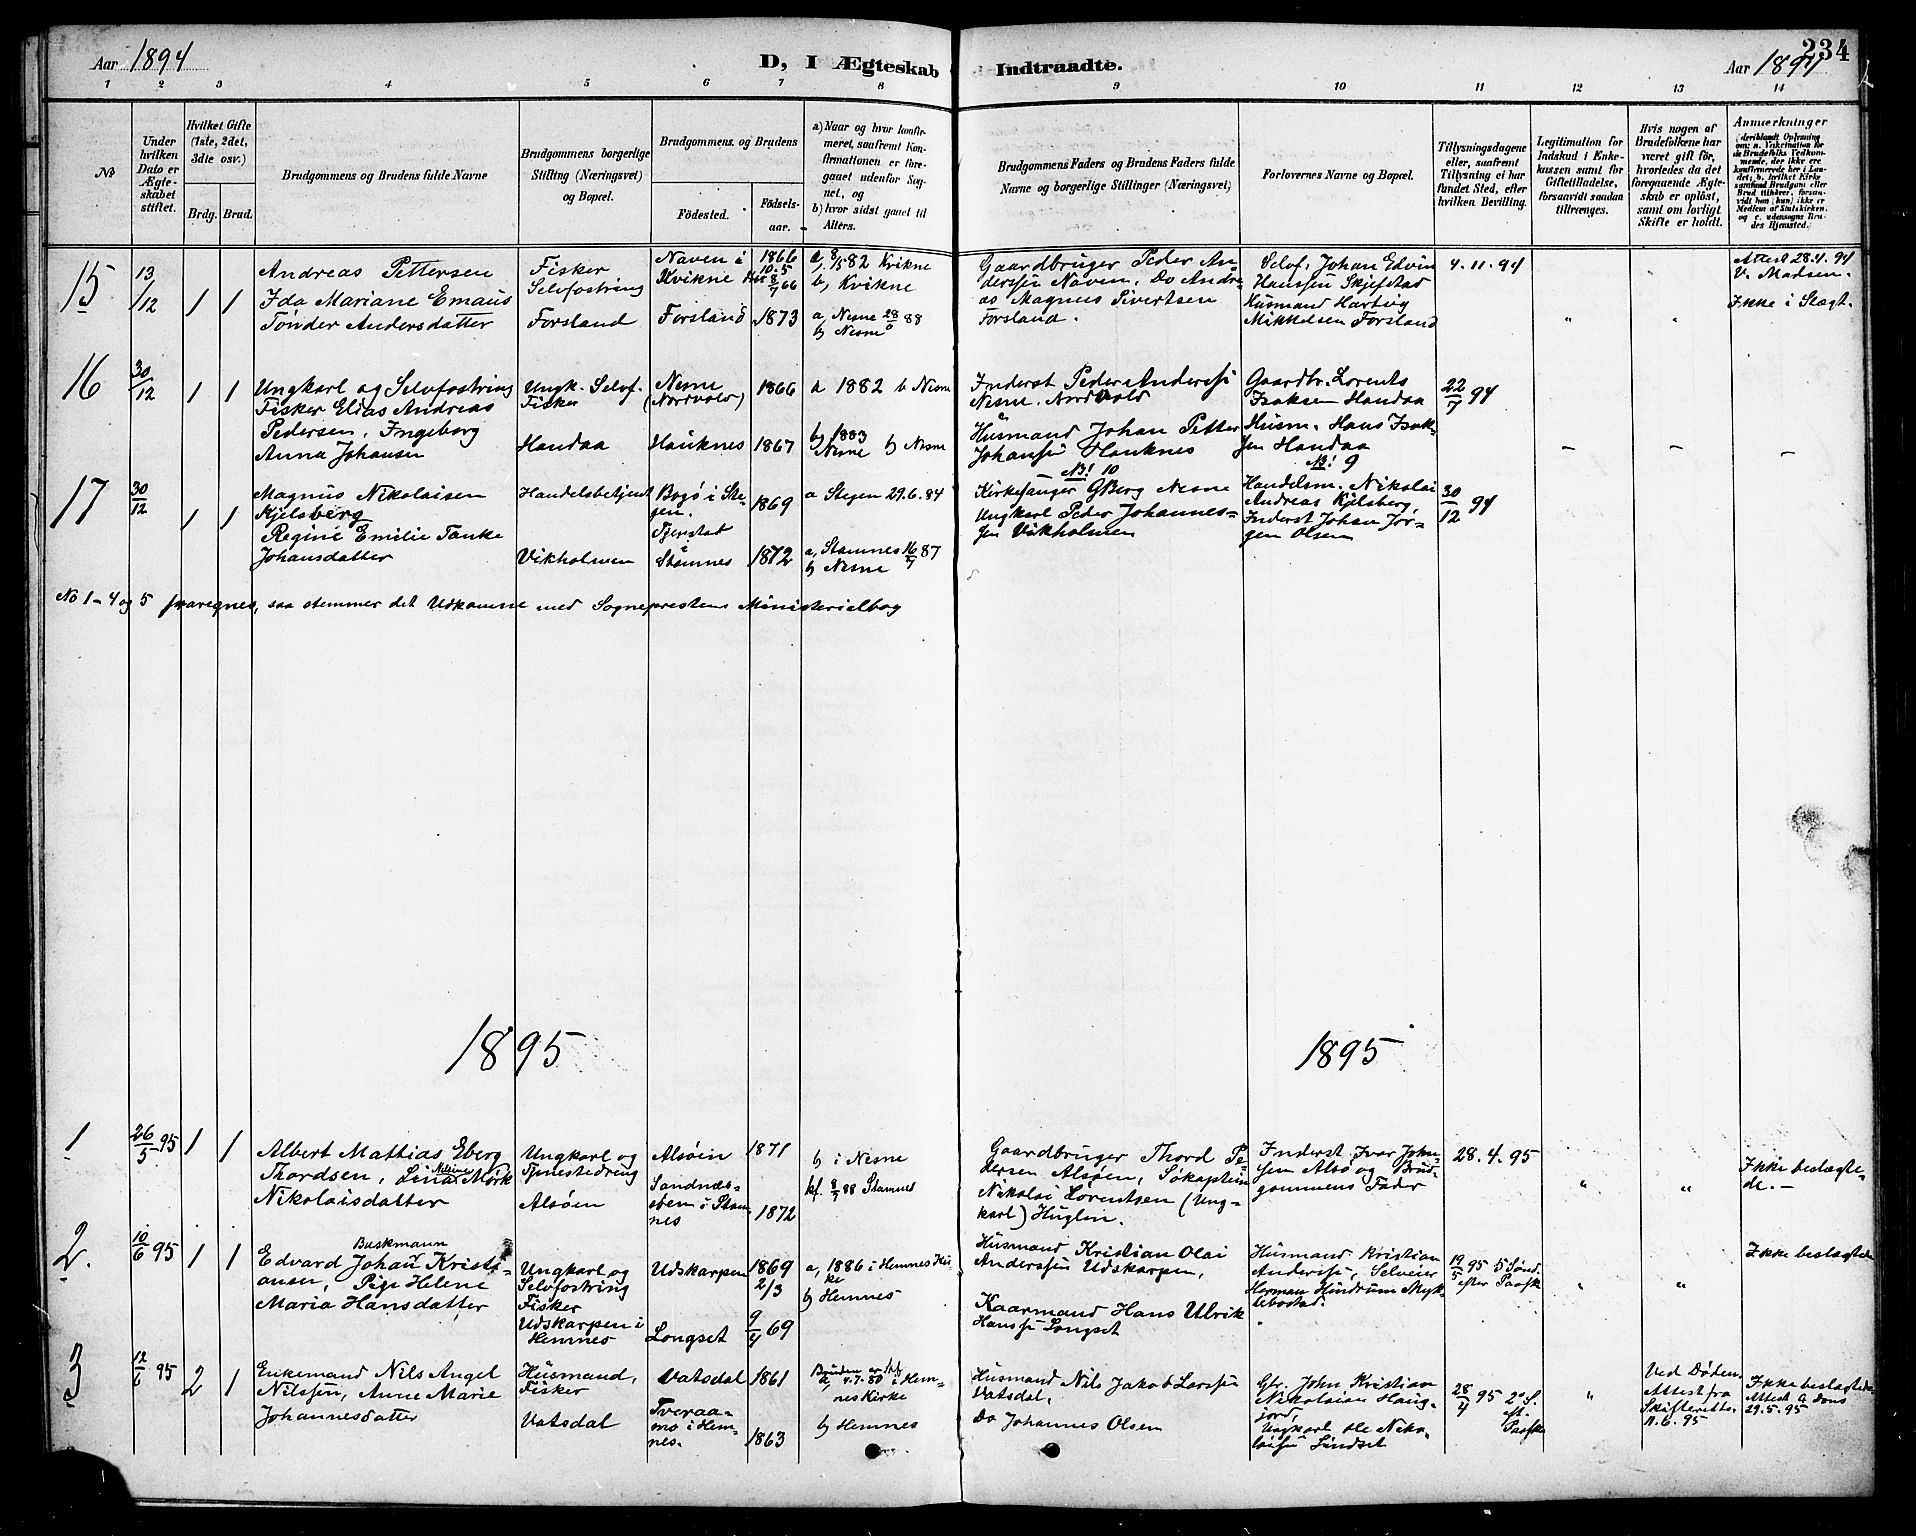 Aar 1894
D, I Ægteskab Indtraadte.
234
Aar 1894
1 2 3 4 5 6 7 8 9 10 11 12 13 14
№
Under hvilken Dato er Ægteskabet stiftet.
Hvilket Gifte (1ste, 2det, 3die osv.)
Brdg. Brud.
Brudgommens og Brudens fulde Navne
Brudgommens borgerlige Stilling (Næringsvei) og Bopæl.
Brudgommens og Brudens
Fødested.
Fødselsaar.
a) Naar og hvor konfirmeret, saafremt Konfirmationen er foregaaet udenfor Sognet, og
b) hvor sidst gaaet til Alters.
Brudgommens Faders og Brudens Faders fulde Navne og borgerlige Stillinger (Næringsvei)
Forlovernes Navne og Bopæl.
Tillysningsdagene eller, saafremt Tillysning ei har fundet Sted, efter hvilken Bevilling.
Legitimation for Indskud i Enkekassen samt for Giftetilladelse, forsaavidt saadan tiltrænges.
Hvis nogen af Brudefolkene har været gift før, hvorledes da det foregaaende Ægteskab er opløst, samt om lovligt Skifte er holdt.
Anmærkninger
15
13/12
1 1
Andreas Pettersen
Ida Mariane Emaus
Tønder Andersdatter
Fisker
Selvfostring
Forsland
Naven i
Kvikne
Forsland
1866
10-5
8/7 66
1873
a, 8/5 82 Kvikne
b, Kvikne
a Nesne 88
b Nesne
Gaardbruger Peder An-
derssen Naven. Do Andre-
as Magnus Sivertsen
Forsland.
Selvf. Johan Edvin
Hanssen Skjefstad
Husmand Hartvig
Mikkelsen Forsland
4.11.94
"
"
Attest 28.4.94
V. Madsen.
Ikke i Slægt.
16
30/12
1 1
Ungkarl og Selvfostring
Fisker Elias Andreas
Pedersen, Ingeborg
Anna Johansen
Ungk. Selvf.
Fisker
Handaa
Nesne
(Nordvold)
Hauknes
1866
1867
a 1882 b Nesne
b 1883
Nesne b Nesne
Inderst Peder Anderss
Nesne. Nordvold
Husmand Johan Petter
Johanssen Hauknes
Gaardbr. Lorents
Isaksen Handaa
Husm. Hans Isak-
sen Handaa
22/7 94
–
–
–
17
30/12
1 1
Magnus Nikolaisen
Kjelsberg
Regine Emilie Tanke
Johansdatter
Handelsbetjent
Vikholmen
Bogø i Ste-
gen.
Stamnes
1869
1872
a Stegen 29.6.84
a, Stamnes 16/7 87
b Nesne
NB! 10
Kirkesanger G Berg Nesne
Ungkarl Peder Johannes-
sen Vikholmen
NB! 9
Handelsm. Nikolai
Andreas Kjelsberg
Inderst Johan Jør-
gen Olsen
30/12 94
No 1-4 og 5 fraregnes, saa stemmer det Udkomne med Sogneprestens Ministerialbog
1895
1895
1
26/5 95
1 1
Albert Mathias Eberg
Thordsen, Lina Nilsine Mørk
Nikolaisdatter
Ungkarl og
Tjenestedreng
Alsøen
Alsøen
Sandnæs-
sten i Stam-
nes
1871
1872
b i Nesne
kf. 8/7 88 Stamnes
Gaardbruger Thord Pe-
dersen Alsøen, Søkaptein
Nikolai Lorentsen (Ung-
karl) Huglen.
Inderst Ivar John-
sen Alsø og Brud-
gommens Fader
28.4.95
"
"
Ikke beslægte-
de.–
2.
10/6 95
1 1
Buskmann
Edvard Johan Kristi-
ansen, Pige Helene
Maria Hansdatter
Ungkarl og
Selvfostring
Fisker
Udskarpen i
Hemnes
Udskarpen
Longset
1869
2/3
9/4 69
a, 1886 i Hemnes Kir-
ke
b Hemnes
Husmand Kristian Olai
Anderssen Udskarpen,
Kaarmand Hans Ulrik
Hanssen Longset
Husmand Kristian
Anderssen, Selveier
Herman Hindrum Myk-
lebostad.
19/5 95 5 Sønd.
efter Paaske
"
"
Ikke beslægtede
3
12/6 95
2 1
Enkemand Nils Angel
Nilssen, Anne Marie
Johannesdatter
Husmand,
Fisker
Vatsdal
Vatsdal
Tveraa-
mo i Hem-
nes.
1861
1863
Bruden er kf.
a, 4.7.80 i Hem-
nes Kirke
b Hemnes
Husmand Nils Jakob Larssen
Vatsdal,
Do Johannes Olsen
Gbr. John Kristian
Nikolaisen Haug-
jord,
Ungkarl Ole Niko-
laisen Lindset
28/4 95 2. S.
eft.
Paaske
"
Ved Døden.
Attest fra
Skifteretten
11.6.95
Ikke beslægtede
29.5.95